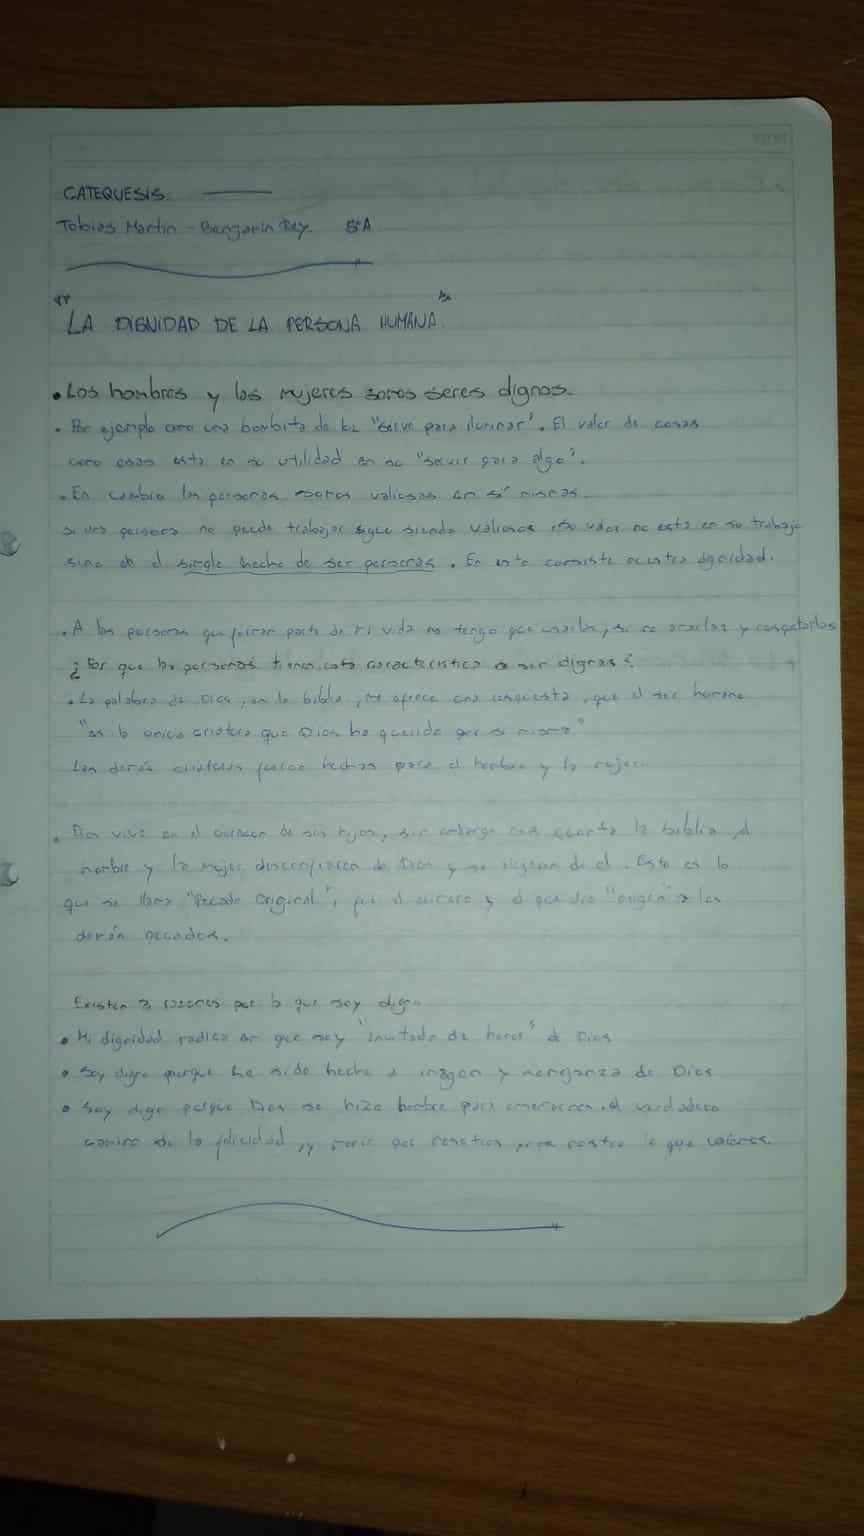 CATEQUESIS
Tobias Martin - Benjamin Rey 5ºA
"LA DIGNIDAD DE LA PERSONA HUMANA"
• Los hombres y las mujeres somos seres dignos.
• Por ejemplo como una bombita de luz "sirve para iluminar". El valor de cosas
como esas esta en su utilidad en su "servir para algo".
• En cambio las personas somos valiosas en sí mismas.
si una persona no puede trabajar sigue siendo valiosa, su valor no esta en su trabajo
sino en el simple hecho de ser personas. En esto consiste nuestra dignidad.
• A las personas que forman parte de mi vida no tengo que usarlas, si no amarlas y respetarlas
¿Por que las personas tienen esta caracteristica de ser dignas?
• La palabra de Dios, en la biblia, nos ofrece una respuesta, que el ser humano
"es la unica criatura que Dios ha querido por si misma."
Las demás criaturas fueron hechas para el hombre y la mujer.
• Dios vive en el corazon de sus hijos, sin embargo como cuenta la biblia, el
hombre y la mujer desconfiaron de Dios y se alejaron de el. Esto es lo
que se llama "Pecado Original", fue el primero y el que dio "origen" a los
demás pecados.
Existen 3 razones por lo que soy digno
• Mi dignidad radica en que soy "invitado de honor" de Dios
• Soy digno porque he sido hecho a imagen y semejanza de Dios
• Soy digno porque Dios se hizo hombre para enseñarnos el verdadero
camino de la felicidad, y morir por nosotros, nos mostro lo que valemos.